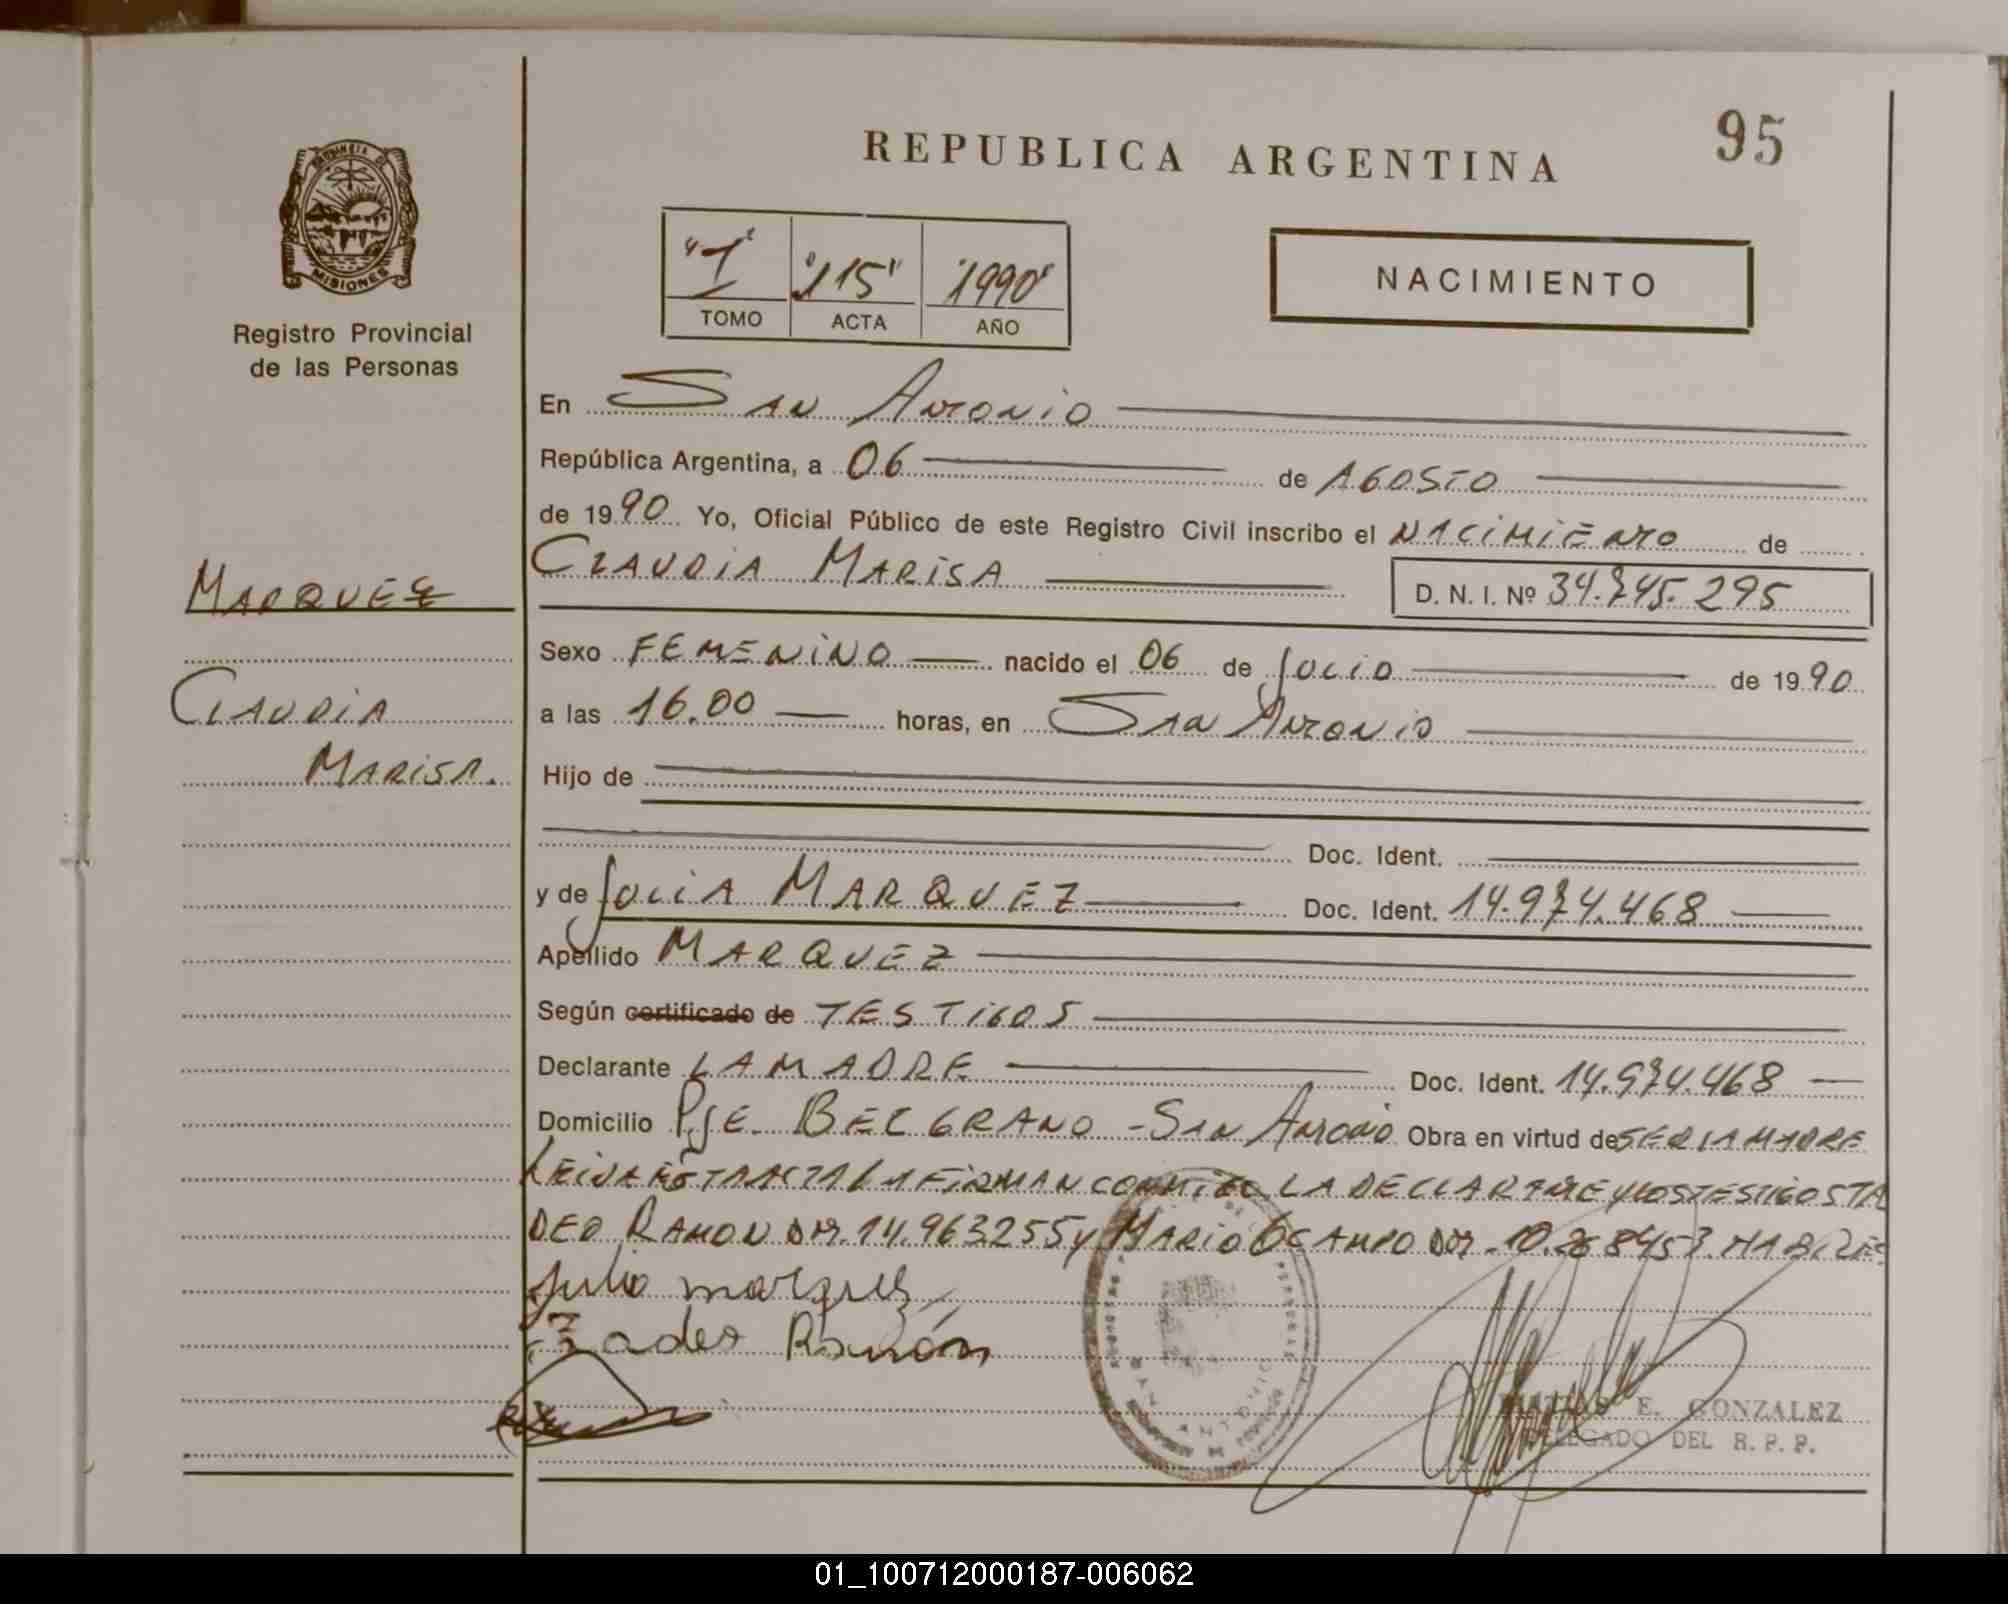 95
REPUBLICA ARGENTINA
PROVINCIA DE
MISIONES
Registro Provincial
de las Personas
"1" "115" "1990"
TOMO ACTA AÑO
NACIMIENTO
En SAN ANTONIO
República Argentina, a 06 de AGOSTO
de 1990 Yo, Oficial Público de este Registro Civil inscribo el NACIMIENTO de
MARQUEZ
CLAUDIA MARISA D. N. I. Nº 34.745.295
Sexo FEMENINO nacido el 06 de JULIO de 1990
CLAUDIA
MARISA.
a las 16.00 horas, en SAN ANTONIO
Hijo de
Doc. Ident.
y de JULIA MARQUEZ Doc. Ident. 14.974.468
Apellido MARQUEZ
Según certificado de TESTIGOS
Declarante LA MADRE Doc. Ident. 14.974.468
Domicilio PJE. BELGRANO - SAN ANTONIO Obra en virtud de SER LA MADRE
LEIDA ESTA ACTA LA FIRMAN CONMIGO LA DECLARANTE Y LOS TESTIGOS TA
DEO RAMON DNI. 14.963255 y MARIO OCAMPO DNI. 10.268453 HABILES
Julia marquez
Tadeo Ramón
SAN ANTONIO
MATIAS E. GONZALEZ
DELEGADO DEL R. P. P.
01_100712000187-006062